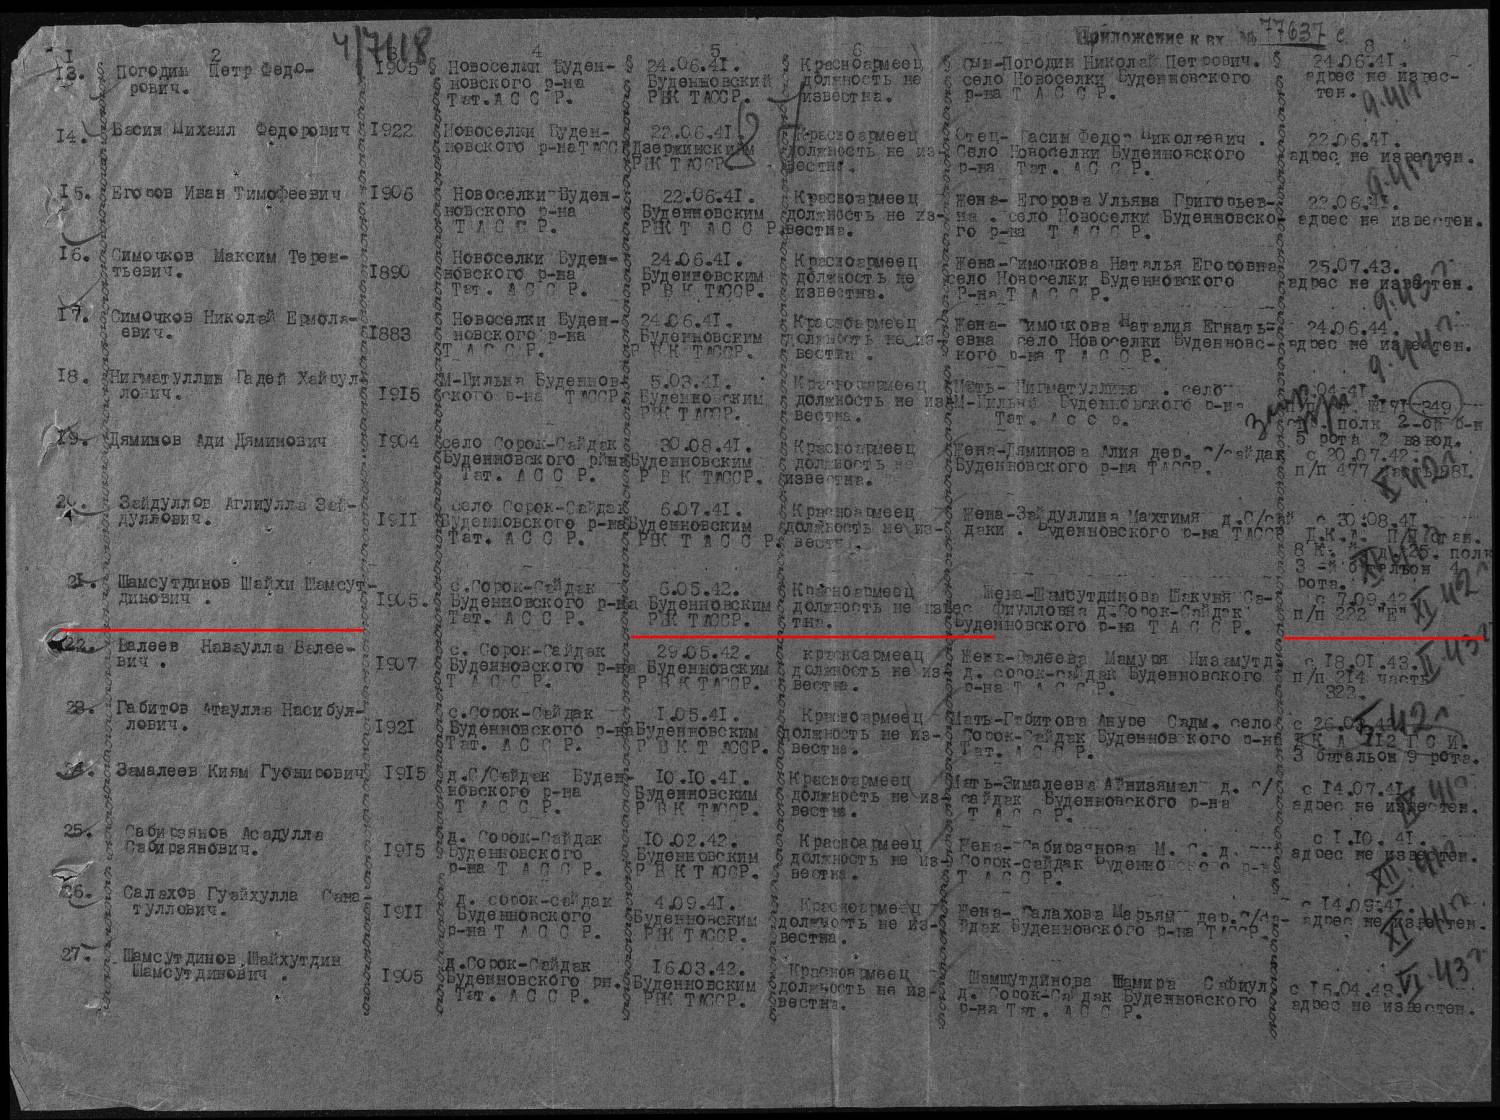 Приложение к вх № 77637 с
4/7118
I 2 3 4 5 6 8
13. Погодин Петр Федорович. 1905 Новоселки Буден-
новского р-на
Тат. А С С Р.
24.06.41.
Буденновский
РВК ТАССР.
Красноармеец
должность не
известна.
сын-Погодин Николай Петрович.
село Новоселки Буденновского
р-на Т А С С Р.
24.06.41.
адрес не извес-
тен.
9.41г.
14. Васин Михаил Федорович 1922 Новоселки Буден-
новского р-на ТАССР
22.06.41.
Дзержинским
РВК ТАССР.
Красноармеец
должность не из-
вестна.
Отец- Васин Федор Николаевич.
Село Новоселки Буденновского
р-на Тат. А С С Р.
22.06.41.
адрес не известен.
9.41г.
15. Егоров Иван Тимофеевич 1906 Новоселки Буден-
новского р-на
Т А С С Р.
22.06.41.
Буденновским
РВК Т А С С Р.
Красноармеец
должность не из-
вестна.
Жена- Егорова Ульяна Григорьев-
на. село Новоселки Буденновско-
го р-на Т А С С Р.
22.06.41.
адрес не известен.
16. Симочков Максим Терен-
тьевич. 1890
Новоселки Буден-
новского р-на
Тат. А С С Р.
24.06.41.
Буденновским
Р В К ТАССР.
Красноармеец
должность не
известна.
Жена-Симочкова Наталья Егоровна
село Новоселки Буденновского
Р-на Т А С С Р.
25.07.43.
адрес не известен.
9.43г.
17. Симочков Николай Ермола-
евич. 1883
Новоселки Буден-
новского р-на
Т А С С Р.
24.06.41.
Буденновским
Р В К ТАССР.
Красноармеец
должность не из-
вестна.
Жена- Симочкова Наталия Егнать-
евна село Новоселки Буденновс-
кого р-на Т А С С Р.
24.06.44.
адрес не известен.
9.44г.
18. Нигматуллин Гадей Хайрул-
лович. 1915
М-Цильна Буденнов-
ского р-на ТАССР.
5.03.41.
Буденновским
РВК ТАССР.
Красноармеец
должность не из-
вестна.
Мать- Нигматуллина . село
М-Цильна Буденновского р-на
Тат. А с с р.
04.41.
249
полк 2-ой б-н
5 рота 2 взвод.
19. Дяминов Ади Дямимович 1904
село Сорок-Сайдак
Буденновского рйна
Тат. А С С Р.
30.08.41.
Буденновским
Р В К ТАССР.
Красноармеец
должность не
известна.
Жена-Дяминова Алия дер. С/сайдак
Буденновского р-на ТАССР.
с 20.07.42.
п/п 477 981.
20. Зайдуллов Аглиулла Зай-
дуллович. 1911
село Сорок-Сайдак
Буденновского р-на
Тат. А С С Р.
6.07.41.
Буденновским
РВК Т А С С Р.
Красноармеец
должность не из-
вестна.
Жена-Зайдуллина Махтимя д.С/сай
даки. Буденновского р-на ТАССР
с 30.08.41.
полк
3-й батальон 4
рота.
21. Шамсутдинов Шайхи Шамсут-
динович. 1905.
с.Сорок-Сайдак
Буденновского р-на
Тат. А С С Р.
6.05.42.
Буденновским
РВК ТАССР.
Красноармеец
должность не извес
тна.
Жена-Шамсутдинова Шакуня Са-
фиулловна д.Сорок-Сайдак
Буденновского р-на Т А С С Р.
с 7.09.42
п/п 222 "Е"
XI 42г
22. Валеев Наваулла Валее-
вич. 1907
с. Сорок-Сайдак
Буденновского р-на
Т А С С Р.
29.05.42.
Буденновским
Р В К ТАССР.
красноармеец
должность не из-
вестна.
Жена-Валеева Мамуря Низамутд.
д. сорок-сайдак Буденновского
р-на Т А С С Р.
с 18.01.43.
п/п 214 часть
322.
II 43г
23. Габитов Атаулла Насибул-
лович. 1921
с.Сорок-Сайдак
Буденновского р-на
Тат. А С С Р.
1.05.41.
Буденновским
Р В К Т АССР.
Красноармеец
должность не из-
вестна.
Мать-Габитова Ануре Садм. село
Сорок-Сайдак Буденновского р-на
Тат. А С С Р.
Д К А 112 Г С И.
3 батальон 9 рота.
24. Замалеев Киям Губмирович 1915
д.С/Сайдак Буден-
новского р-на
Т А С С Р.
10.10.41.
Буденновским
Р В К ТАССР.
Красноармеец
должность не из-
вестна.
Мать-Зималеева Айнизямал д. С/
сайдак Буденновского р-на
Т А С С Р.
с 14.07.41.
адрес не известен.
25. Сабирзянов Асадулла
Сабирзянович. 1915
д. Сорок-Сайдак
Буденновского
р-на Т А С С Р.
10.02.42.
Буденновским
Р В К Т АССР.
Красноармеец
должность не из-
вестна.
Жена-Сабирзянова М. С. д.
Сорок-сайдак Буденновского р-на
Т А С С Р.
с 1.10.41.
адрес не известен.
26. Салахов Гузайхулла Сана-
туллович. 1911
д. сорок-сайдак
Буденновского
р-на Т А С С Р.
4.09.41.
Буденновским
РВК ТАССР.
Красноармеец
должность не из-
вестна.
Жена- Салахова Марьям дер.С/са-
йдак Буденновского р-на ТАССР.
с 14.09.41.
адрес не известен.
27. Шамсутдинов Шайхутдин
Шамсутдинович. 1905
д.Сорок-Сайдак
Буденновского рн.
Тат. А С С Р.
16.03.42.
Буденновским
РВК ТАССР.
Красноармеец
должность не из-
вестна.
Шамшутдинова Шамира Сафиул
д. Сорок-Сайдак Буденновского
р-на Тат. А С С Р.
с 15.04.43.
адрес не известен.
VI 43г